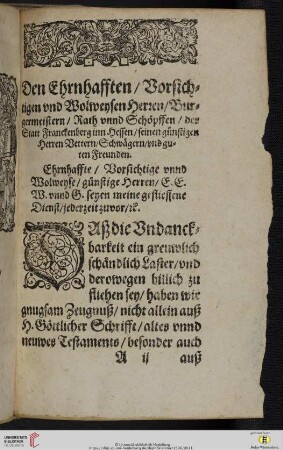 Den Ehrnhafften / Vorsich-
tigen vnd Wolweysen Herren / Bur-
germeistern / Rath vnnd Schöpffen / der
Statt Franckenberg inn Hessen / seinen günstigen
Herren Vettern / Schwägern / vnd gu-
ten Freunden.
Ehrnhaffte / Vorsichtige vnnd
Wolweyse / günstige Herren / E. E.
W. vnnd G. seyen meine geflissene
Dienst / jederzeit zuvor / ꝛc.
DAß die Vndanck-
barkeit ein grewlich
schändlich Laster / vnd
derowegen billich zu
fliehen sey / haben wir
gnugsam Zeugnuß / nicht allein auß
H. Göttlicher Schrifft / altes vnnd
neuwes Testaments / besonder auch
A ij auß